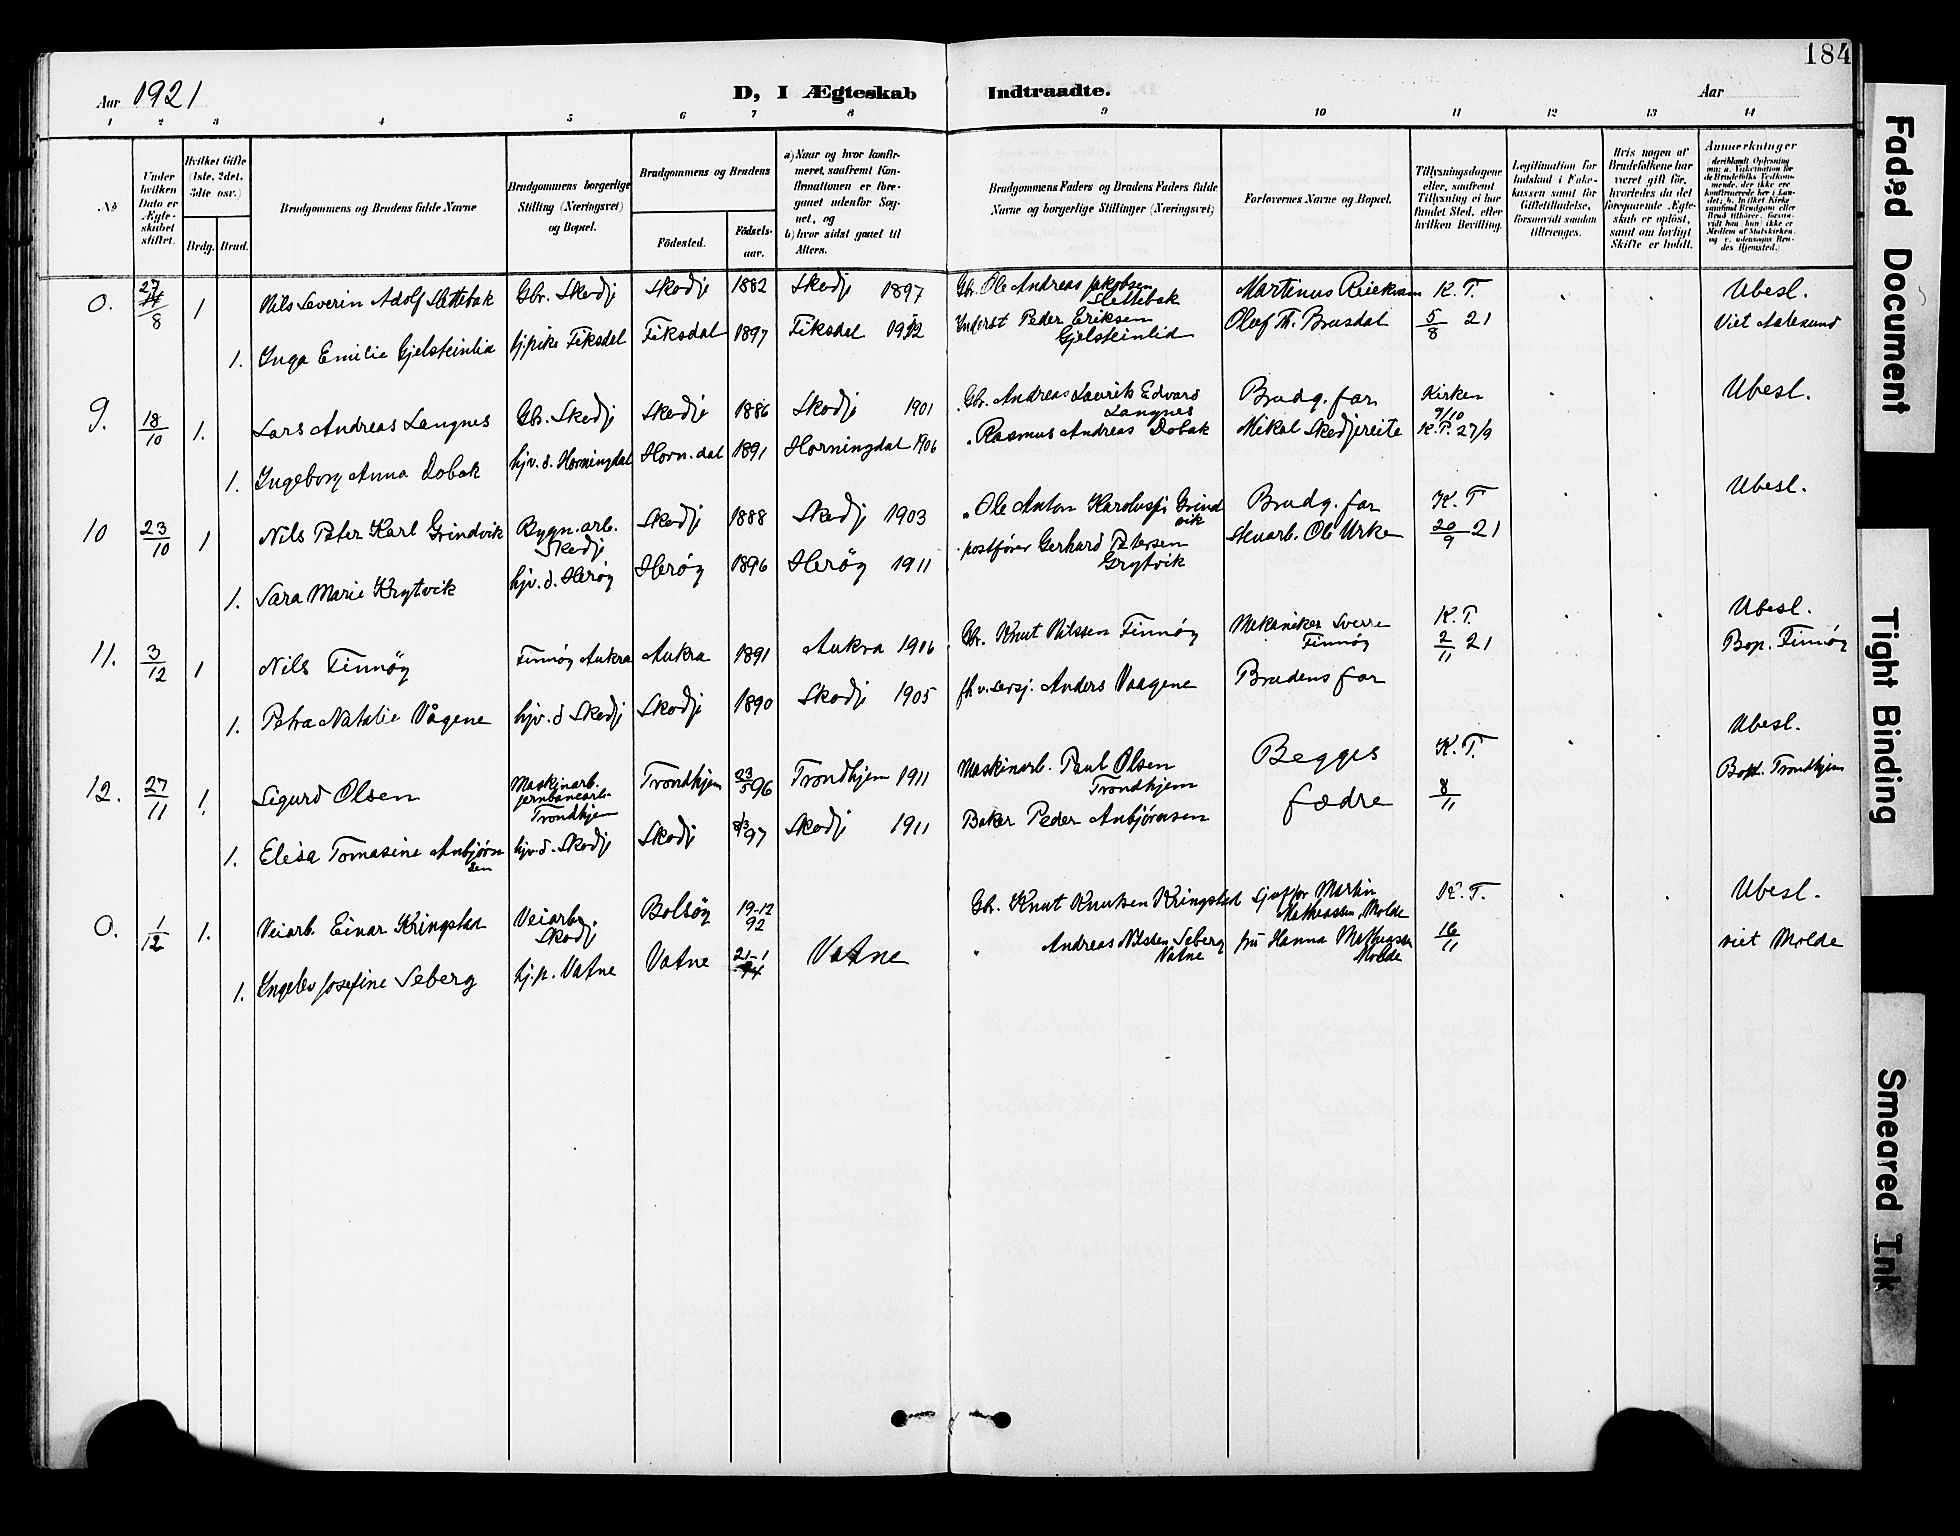 184
Aar 1921
D, I Ægteskab Indtraadte.
Aar
1 2 3 4 5 6 7 8 9 10 11 12 13 14
No
Under hvilken Dato er Ægteskabet stiftet.
Hvilket Gifte (1ste, 2det, 3die osv.)
Brdg. Brud.
Brudgommens og Brudens fulde Navne
Brudgommens borgerlige Stilling (Næringsvei) og Bopæl.
Brudgommens og Brudens
Födested. Födselsaar.
a) Naar og hvor konfirmeret, saafremt Konfirmationen er foregaaet udenfor Sognet, og
b) hvor sidst gaaet til Alters.
Brudgommens Faders og Brudens Faders fulde Navne og borgerlige Stillinger (Næringsvei)
Forlovernes Navne og Bopæl.
Tillysningsdagene eller, saafremt Tillysning ei har fundet Sted, efter hvilken Bevilling.
Legitimation for Indskud i Enkekassen samt for Giftetilladelse, forsaavidt saadan tiltrænges.
Hvis nogen af Brudefolkene har været gift før, hvorledes da det foregaaende Ægteskab er opløst, samt om lovligt Skifte er holdt.
Anmerkninger
0. 27/8 1 Nils Severin Adolf Slettebak Gbr. Skodj Skodje 1882 Skodj 1897 Gbr. Ole Andreas Jakobsen Slettebak Martinus K.T. Ubesl.
1. Inga Emilie Gjelsteinlid hj.pike Fiksdal Fiksdal 1897 Fiksdal 1912 Inderst Peder Eriksen Gjelsteinlid Oluf Th. Brusdal 5/8 21 Viet Aalesund
9. 18/10 1. Lars Andreas Langnes Gbr. Skodj Skodje 1886 Skodje 1901 Gbr. Andreas Laurik Edvard Langnes Brudg. far Kirken 9/10 Ubesl.
1. Ingeborg Anna Dobak hjv. d. Horningdal Horn.dal 1891 Horningdal 1906 " Rasmus Andreas Dobak Mikal Skodjereite K.T. 27/9
10 23/10 1 Nils Peter Karl Grindvik Bygn.arb. Skodj Skodj 1888 Skodj 1903 " Ole Anton Grindvik Brudg. far K.T. Ubesl.
1. Sara Marie Krytvik hjv. d. Herøy Herøy 1896 Herøy 1911 postfører Gerhard Petersen Grytvik Ol Urke 20/9 21
11. 3/12 1 Nils Finnöy Finnöy Aukra Aukra 1891 Aukra 1916 Gbr. Knut Nilssen Finnöy Mekaniker Sverre Finnöy K.T. 2/11 21 Ubesl. Bop. Finnöy
1. Petra Natalie Vågene hjv. d Skodj Skodj 1890 Skodj 1905 Anders Vaagene Brudens far
12. 27/11 1. Sigurd Olsen Maskinarb. jernbanearb. Trondhjem Trondhjem 23/5 96 Trondhjem 1911 Maskinarb. Paul Olsen Trondhjem Begges fædre K.T. 8/11 Ubesl. Bop. Trondhjem
1. Elisa Tomasine Anbjörnsen hjv. d. Skodj Skodj 97 Skodj 1911 Baker Peder Anbjörnsen
0. 1/12 1. Veiarb. Einar Kringstad Veiarb. Skodj Bolsöy 19-12 92 Gbr. Knut Knutsen Kringstad Martin Mathiassen, Molde K.T. Ubesl.
1. Ingelev Josefine Seberg hj.p. Vatne Vatne 21-1 94 Vatne " Andreas Nilssen Seberg Vatne fru Hanna Mathiassen Molde 16/11 viet Molde
Faded Document
Tight Binding
Smeared Ink